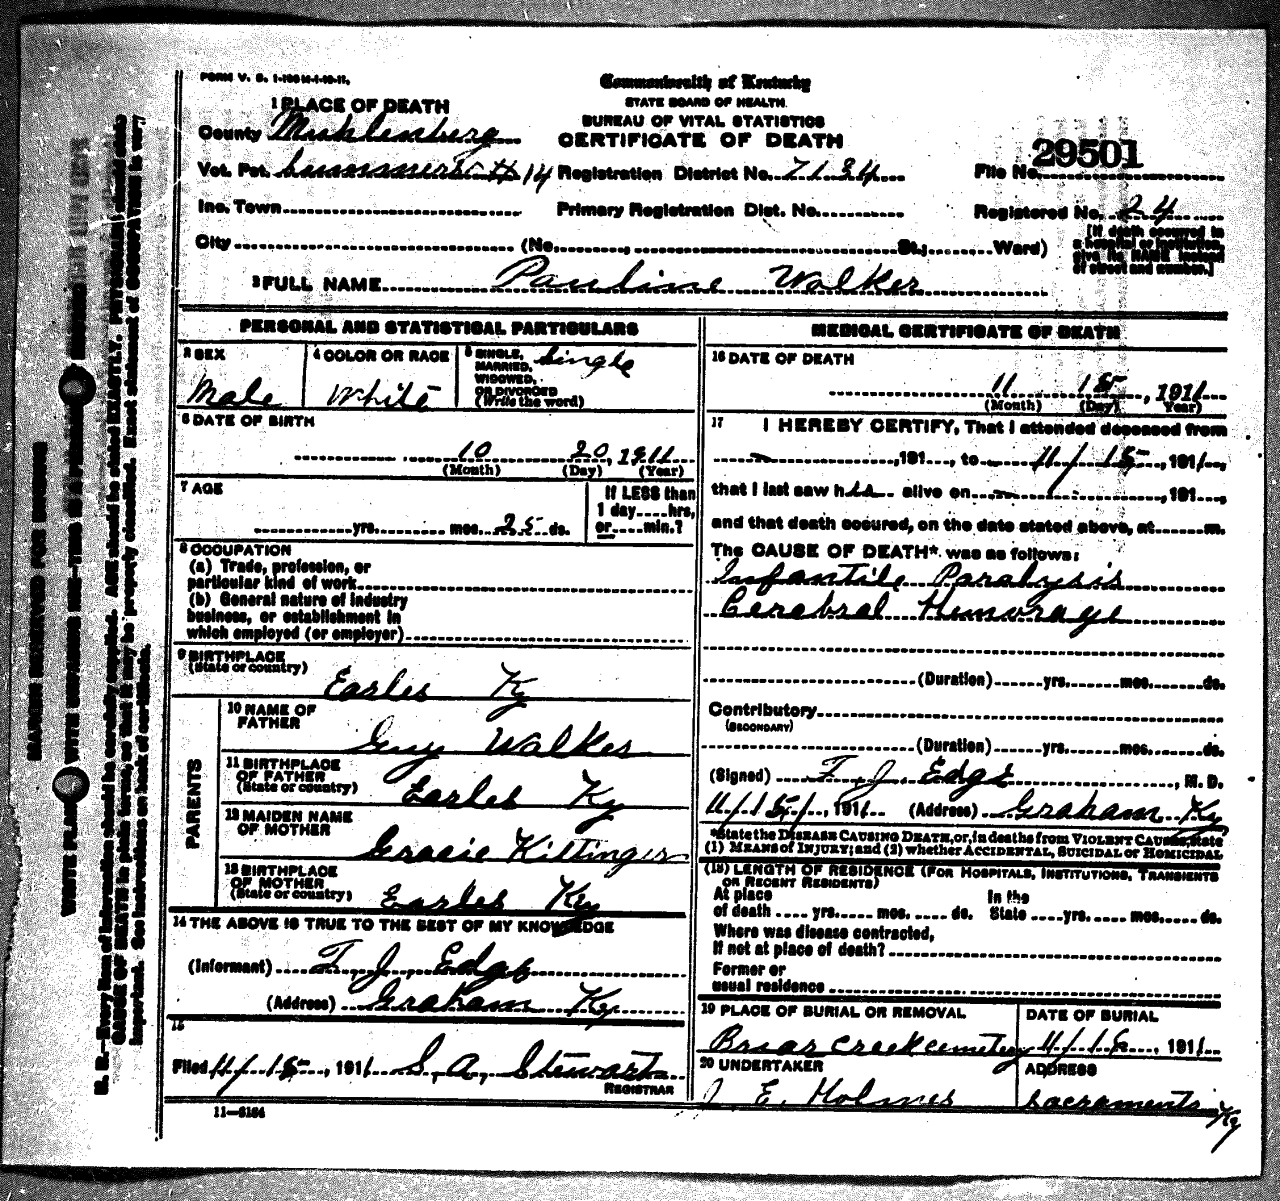 FORM V. S. 1-
Commonwealth of Kentucky
STATE BOARD OF HEALTH.
BUREAU OF VITAL STATISTICS
CERTIFICATE OF DEATH
1 PLACE OF DEATH
County Muhlenberg
Vot. Pct. # 14 Registration District No. 7134
File No. 29501
Inc. Town Primary Registration Dist. No.
Registered No. 24
City (No. , St.; Ward)
[If death occurred in
a hospital or institution,
give its NAME instead
of street and number.]
2 FULL NAME Pauline Walker
PERSONAL AND STATISTICAL PARTICULARS
3 SEX
Male
4 COLOR OR RACE
White
5 SINGLE,
MARRIED,
WIDOWED,
OR DIVORCED
(Write the word)
Single
6 DATE OF BIRTH
10 20, 1911
(Month) (Day) (Year)
7 AGE
yrs. mos. 25 ds.
If LESS than
1 day hrs,
or min.?
8 OCCUPATION
(a) Trade, profession, or
particular kind of work
(b) General nature of industry
business, or establishment in
which employed (or employer)
9 BIRTHPLACE
(State or country)
Earles Ky
PARENTS
10 NAME OF
FATHER
Guy Walker
11 BIRTHPLACE
OF FATHER
(State or country)
Earles Ky
12 MAIDEN NAME
OF MOTHER
Gracie Kittinger
13 BIRTHPLACE
OF MOTHER
(State or country)
Earles Ky
14 THE ABOVE IS TRUE TO THE BEST OF MY KNOWLEDGE
(Informant) T. J. Edge
(Address) Graham Ky
15
Filed 11/15, 1911 S. A. Stewart
REGISTRAR
11—5184
MEDICAL CERTIFICATE OF DEATH
16 DATE OF DEATH
11 15, 1911
(Month) (Day) Year)
17 I HEREBY CERTIFY, That I attended deceased from
, 191 , to 11/15, 1911,
that I last saw h alive on , 191 ,
and that death occured, on the date stated above, at m.
The CAUSE OF DEATH* was as follows:
Infantile Paralysis
Cerebral Hemorage
(Duration) yrs. mos. ds.
Contributory
(SECONDARY)
(Duration) yrs. mos. ds.
(Signed) T. J. Edge, M. D.
11/15/, 1911 (Address) Graham Ky
*State the DISEASE CAUSING DEATH, or, in deaths from VIOLENT CAUSES, state
(1) MEANS of INJURY; and (2) whether ACCIDENTAL, SUICIDAL or HOMICIDAL
(18) LENGTH OF RESIDENCE (FOR HOSPITALS, INSTITUTIONS, TRANSIENTS
OR RECENT RESIDENTS)
At place In the
of death yrs. mos. ds. State yrs. mos. ds.
Where was disease contracted,
If not at place of death?
Former or
usual residence
19 PLACE OF BURIAL OR REMOVAL
Briar creek cemetery
DATE OF BURIAL
11/16, 1911
20 UNDERTAKER
J E. Holmes
ADDRESS
Sacramento Ky
MARGIN RESERVED FOR BINDING
WRITE PLAINLY WITH UNFADING INK—THIS IS A PERMANENT
N. B.—Every item of information should be carefully supplied. AGE should be stated EXACTLY. PHYSICIANS should state
CAUSE OF DEATH in plain terms, so that it may be properly classified. Exact statement of OCCUPATION is very
important. See instructions on back of certificate.